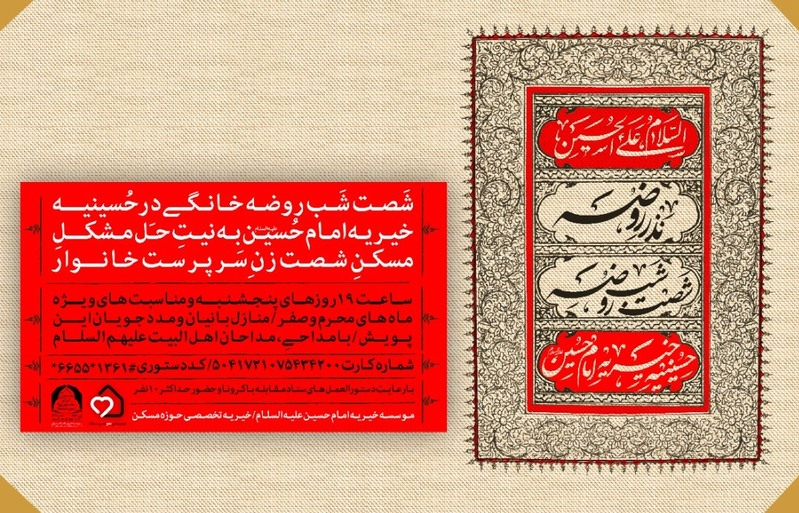 السلام علی الحسین
نذر روضه
شصت شب روضه
حسینیه خیریه امام حسین
شَصت شَب روضه خانگے در حُسینیه
خیریه امام حُسَیْن به نیتِ حَل مشکلِ
مسکنِ شصت زنِ سَرپرست خانوار
ساعت ۱۹ روزهای پنجشنبه و مناسبت های ویژه
ماه های محرم و صفر / منازل بانیان و مددجویان این
پویش / با مداحے، مداحان اهل البیت علیهم السلام
شماره کارت ۵۰۴۱۷۲۱۰۷۵۴۳۴۲۰۰ / کد دستوری #۱۳۶۱*۶۶۵۵*
با رعایت دستورالعمل های ستاد مقابله با کرونا و حضور حداکثر ۱۰ نفر
موسسه خیریه امام حسین علیه السلام / خیریه تخصصی حوزه مسکن